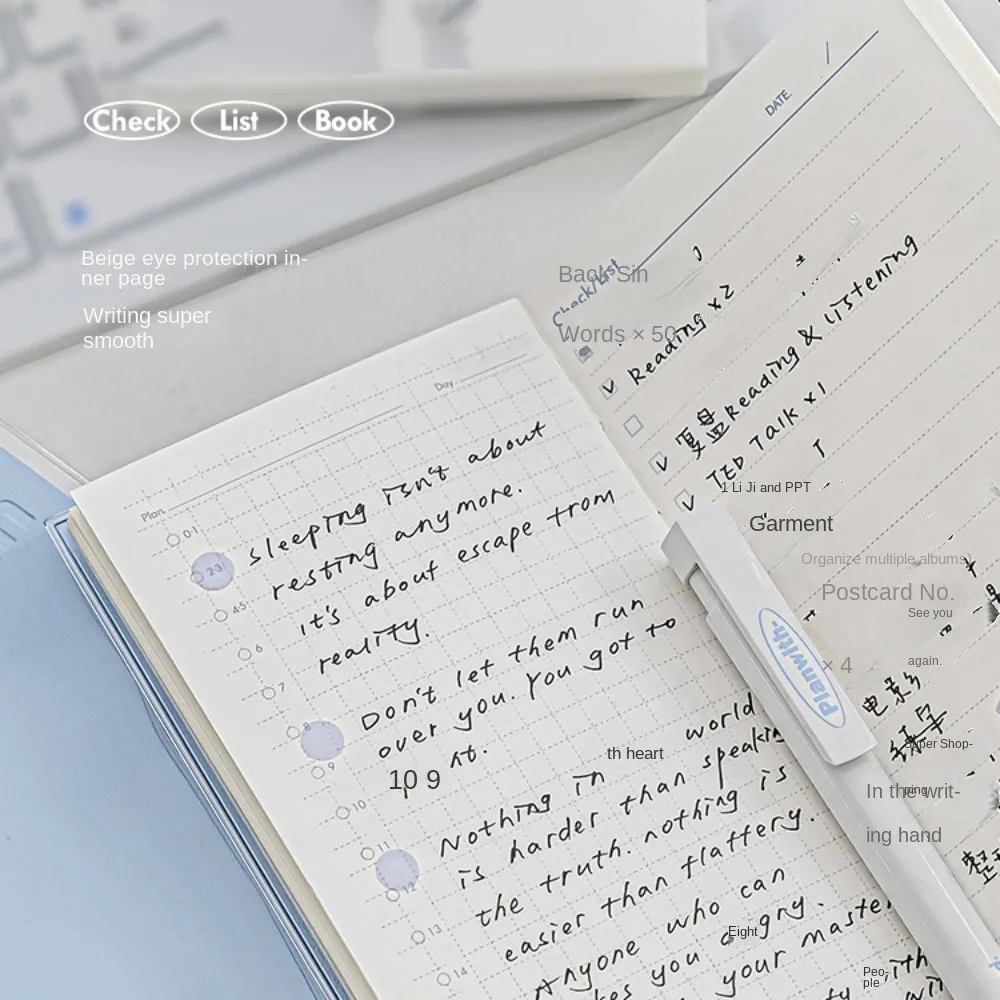 Check List Book
Beige eye protection in-
ner page
Writing super
smooth
DATE. /
Check/List
Back Sin
Words × 50
Reading x2
复盘Reading & Listening
TED Talk x1
1 Li Ji and PPT
Garment
Organize multiple albums)
Postcard No.
See you
× 4
again.
电影
Super Shop-
ping
In the writ-
ing hand
Planwith-
Day
Plan
0-1
2-3
4-5
6
7
8
9
10
11
12
13
14
sleeping isn't about
resting anymore.
it's about escape from
reality.
Don't let them run
over you. You got to
10 9
th heart
Nothing in world
is harder than speakin
the truth. nothing is
easier than flattery.
Anyone who can
Eight
you gry.
your maste
Peo-
ple